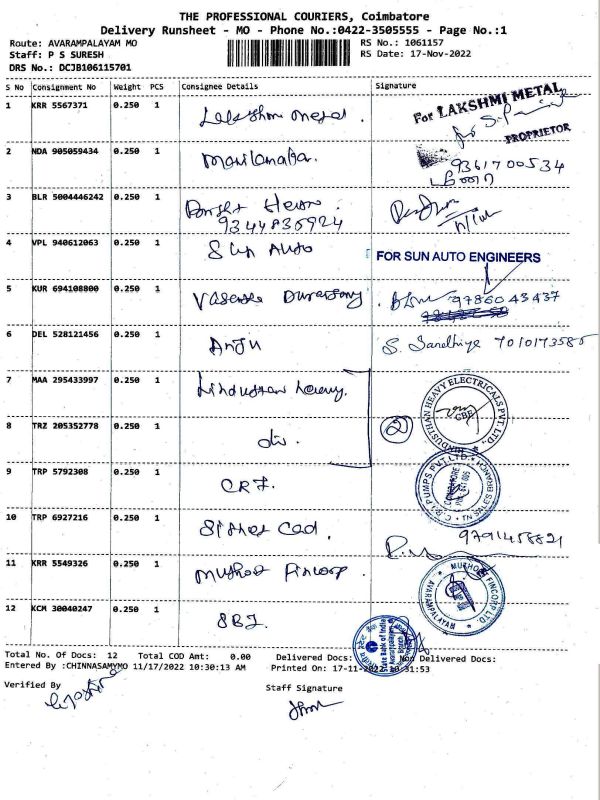 THE PROFESSIONAL COURIERS, Coimbatore
Delivery Runsheet - MO - Phone No.:0422-3505555 - Page No.:1
Route: AVARAMPALAYAM MO
RS No.: 1061157
Staff: P S SURESH
RS Date: 17-Nov-2022
DRS No.: DCJB106115701
S No Consignment No Weight PCS Consignee Details Signature
1 KRR 5567371 0.250 1 Lakshmi metal
For LAKSHMI METAL
PROPRIETOR
2 NDA 905059434 0.250 1
9361700534
3 BLR 5004446242 0.250 1
9344836924
4 VPL 940612063 0.250 1 Sun Auto
FOR SUN AUTO ENGINEERS
5 KUR 694108800 0.250 1
9786043437
6 DEL 528121456 0.250 1 Anju S. Sandhiya 7010173585
7 MAA 295433997 0.250 1 Hindusthan Heavy
HINDUSTHAN HEAVY ELECTRICALS PVT. LTD.
CBE
8 TRZ 205352778 0.250 1 do. 2
9 TRP 5792308 0.250 1 CRI.
C.R.I PUMPS PVT. LTD.
TN SALES BRANCH
10 TRP 6927216 0.250 1
9791458821
11 KRR 5549326 0.250 1 Muthoot Fincorp
MUTHOOT FINCORP LTD.
AVARAMPALAYAM
12 KCM 30040247 0.250 1 SBI.
State Bank of India
Total No. Of Docs: 12 Total COD Amt: 0.00 Delivered Docs: Non Delivered Docs:
Entered By :CHINNASAMYMO 11/17/2022 10:30:13 AM Printed On: 17-11-2022 10:31:53
Verified By
Staff Signature